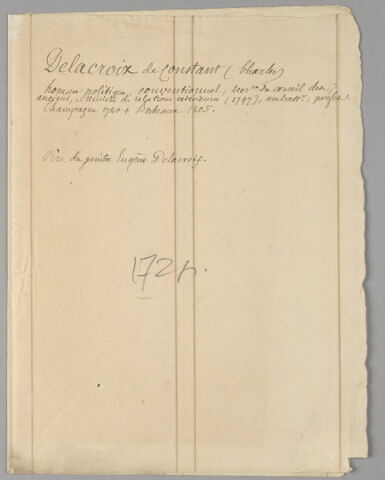 Delacroix de Constant (Charles)
homme politique, conventionnel, secre. du conseil des
anciens, Ministre des relations extérieures (1797), ambassr., préfet.
Champagne 1740 + Bordeaux 1805.
Père du peintre Eugène Delacroix.